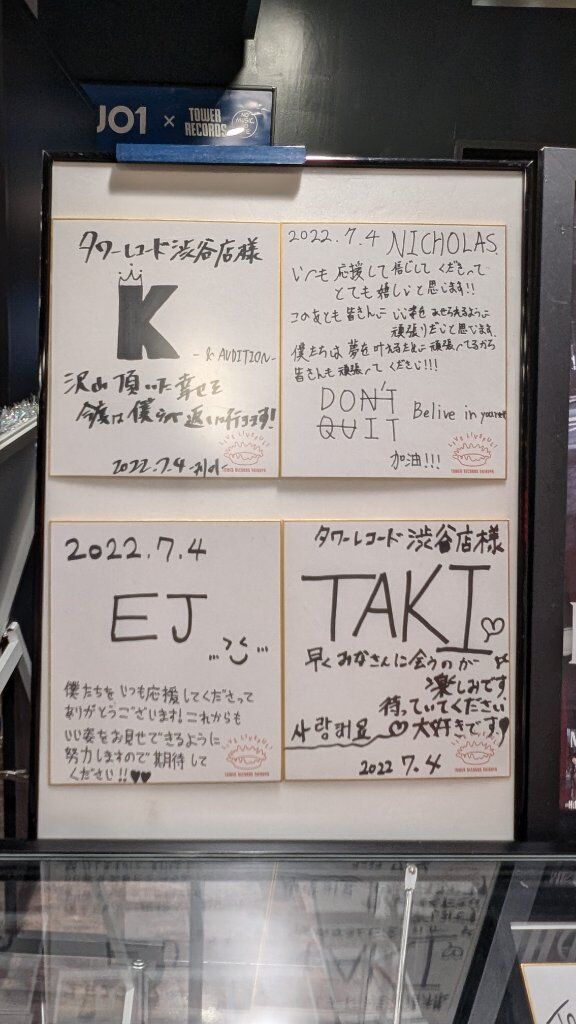 JO1 × TOWER RECORDS
NO MUSIC
タワーレコード渋谷店様
K
-& AUDITION-
沢山頂いた幸せを
今度は僕らで返しに行きます!
2022.7.4
LIVE LIVEFUL!
TOWER RECORDS SHIBUYA
2022.7.4 NICHOLAS
いつも応援して信じてくださって
とても嬉しいと思います!!
このあとも皆さんに いい姿を みせられるように
頑張りたいと思います
僕たちは夢を叶えるために頑張ってるから
皆さんも頑張ってください!!!
DON'T
QUIT
Belive in yourself
加油!!!
TOWER RECORDS SHIBUYA
2022.7.4
EJ
僕たちをいつも応援してくださって
ありがとうございます!これからも
いい姿をお見せできるように
努力しますので期待して
ください!!♥♥
TOWER RECORDS SHIBUYA
タワーレコード渋谷店様
TAKI♡
早くみなさんに会うのが
楽しみです
待っていてください
사랑해요 ♡大好きです♥
2022 7.4
TOWER RECORDS SHIBUYA